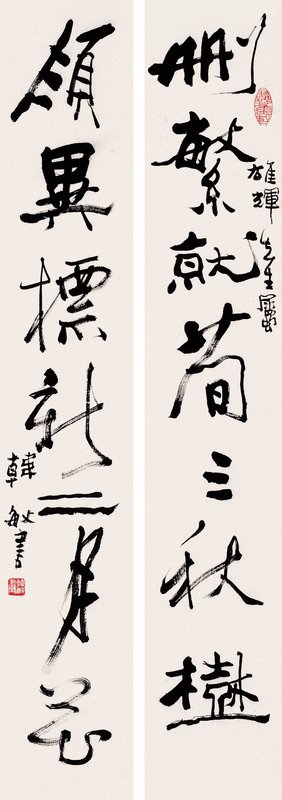 刪繁就簡三秋樹
雄輝先生屬
領異標新二月花
韓敏書